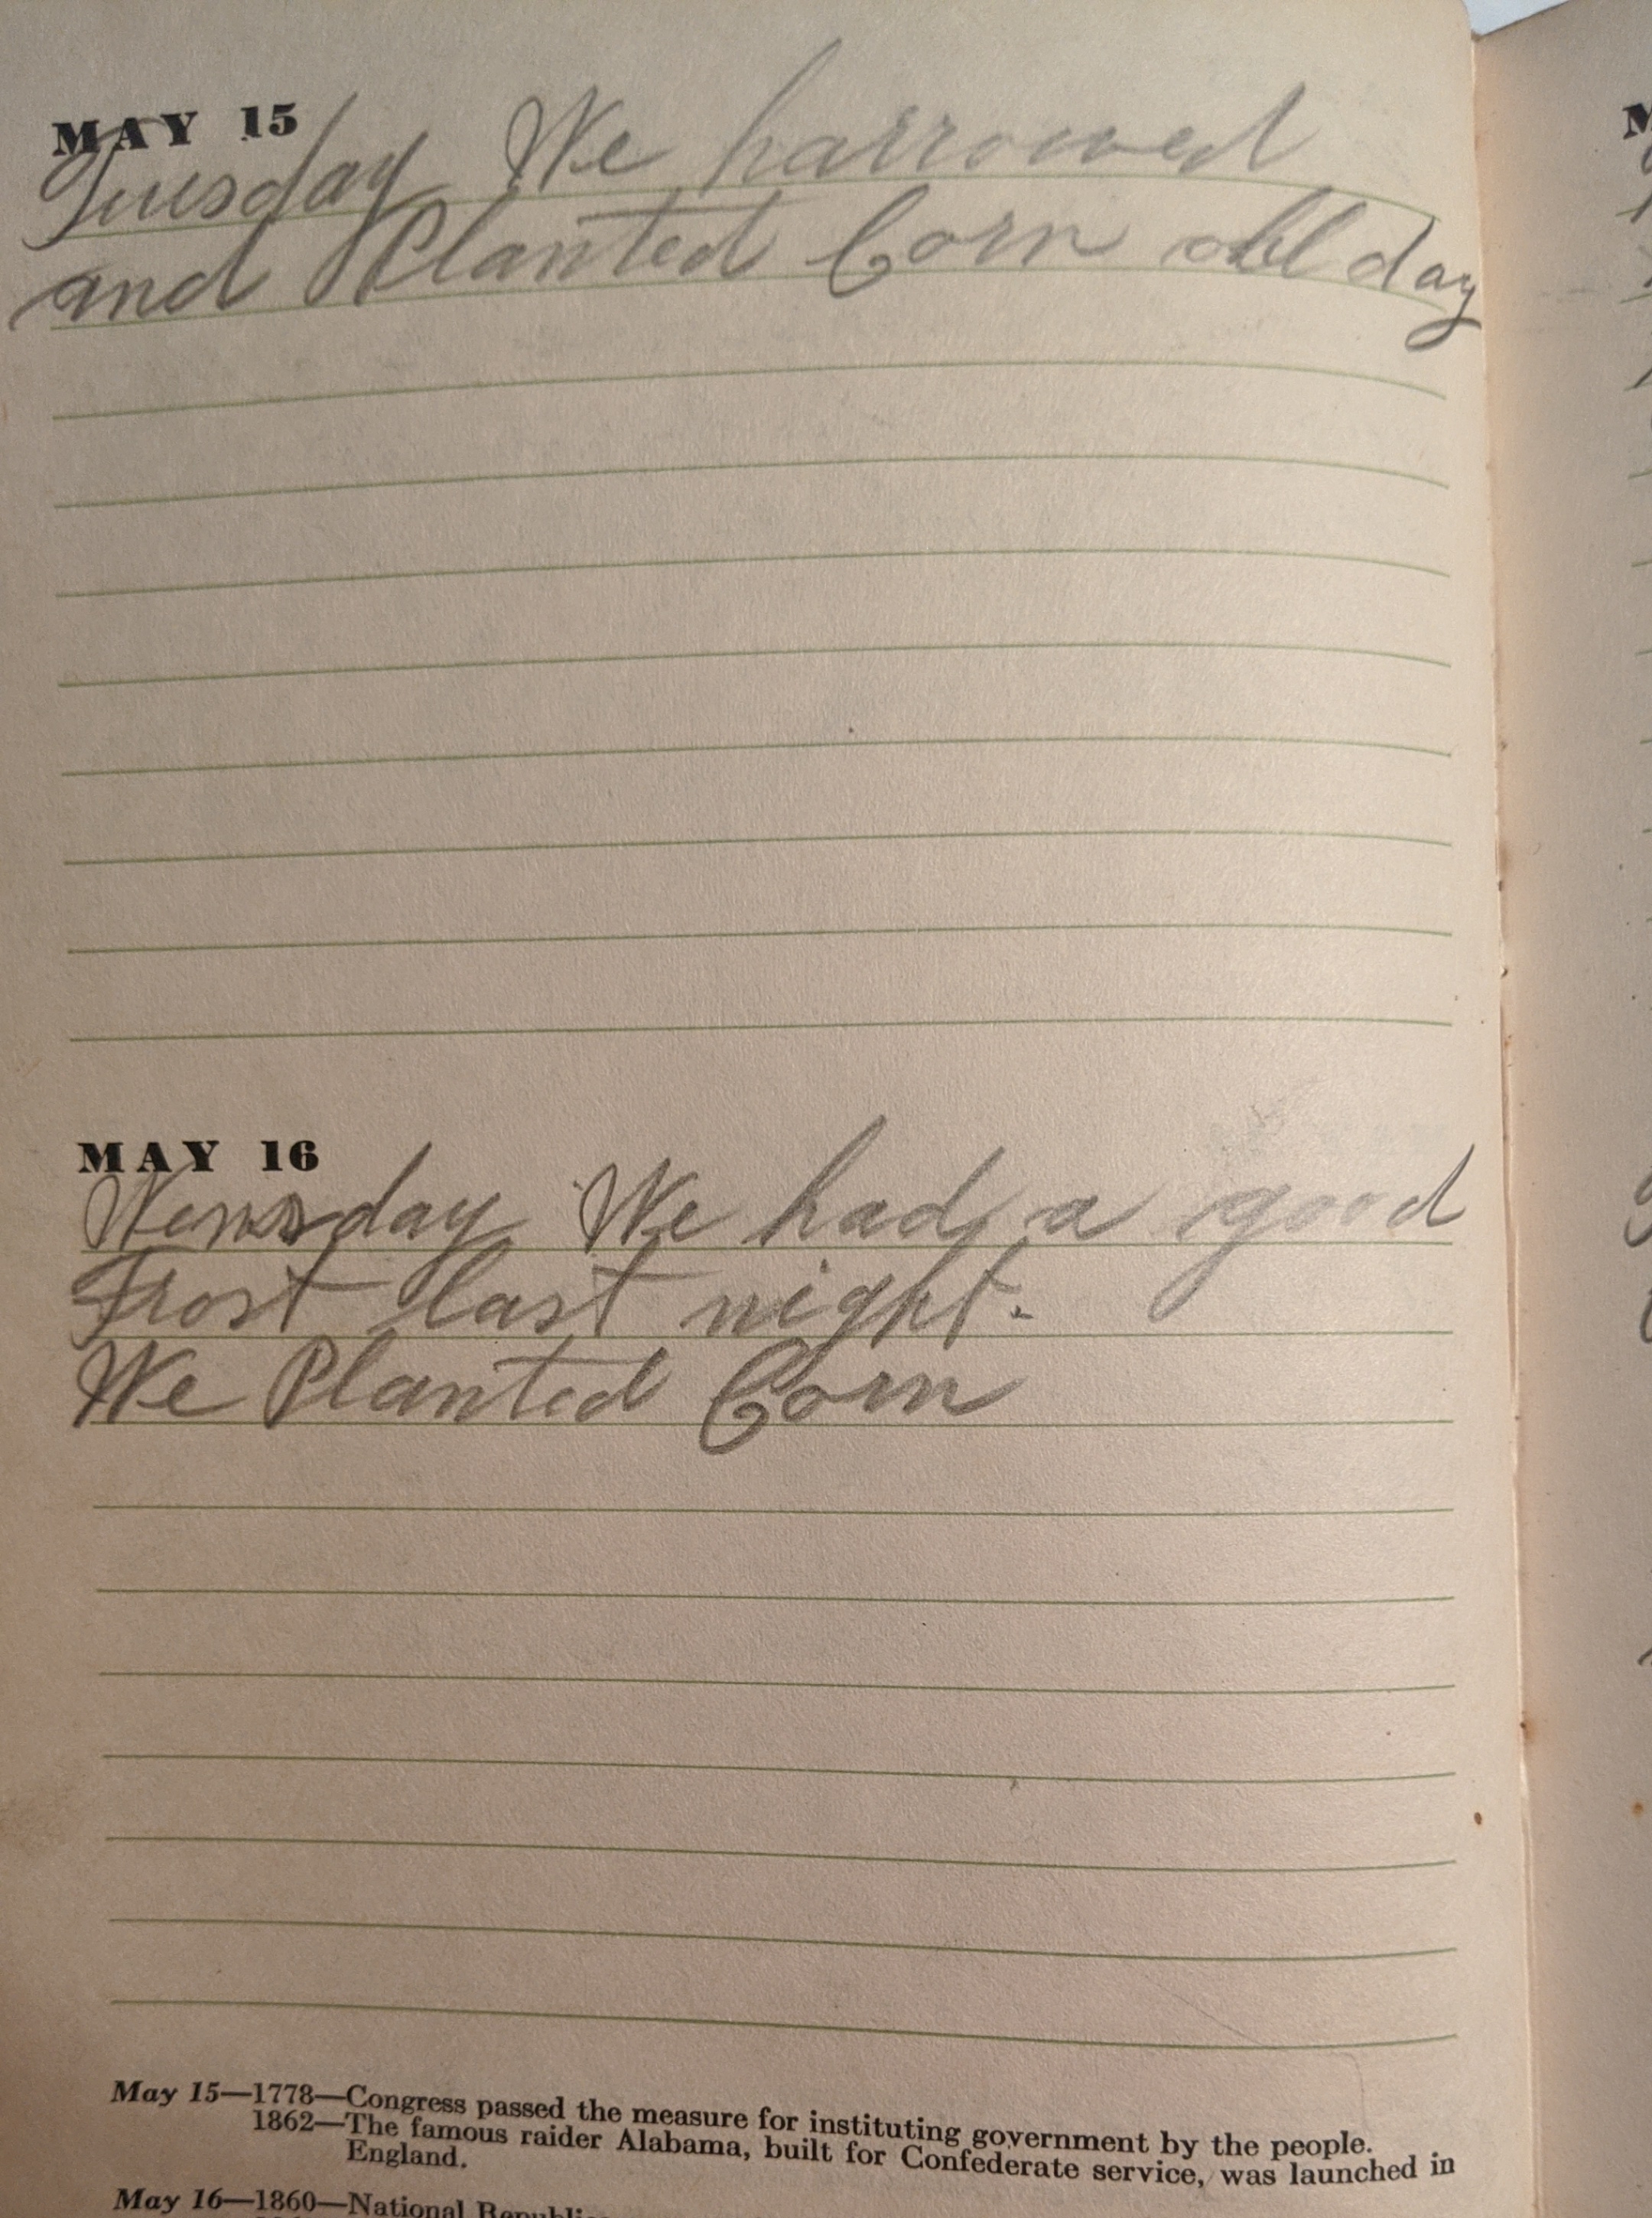 MAY 15
Tuesday We harrowed
and Planted Corn all day
MAY 16
Wensday We had a good
Frost last night.
We Planted Corn
May 15—1778—Congress passed the measure for instituting government by the people.
1862—The famous raider Alabama, built for Confederate service, was launched in
England.
May 16—1860—National